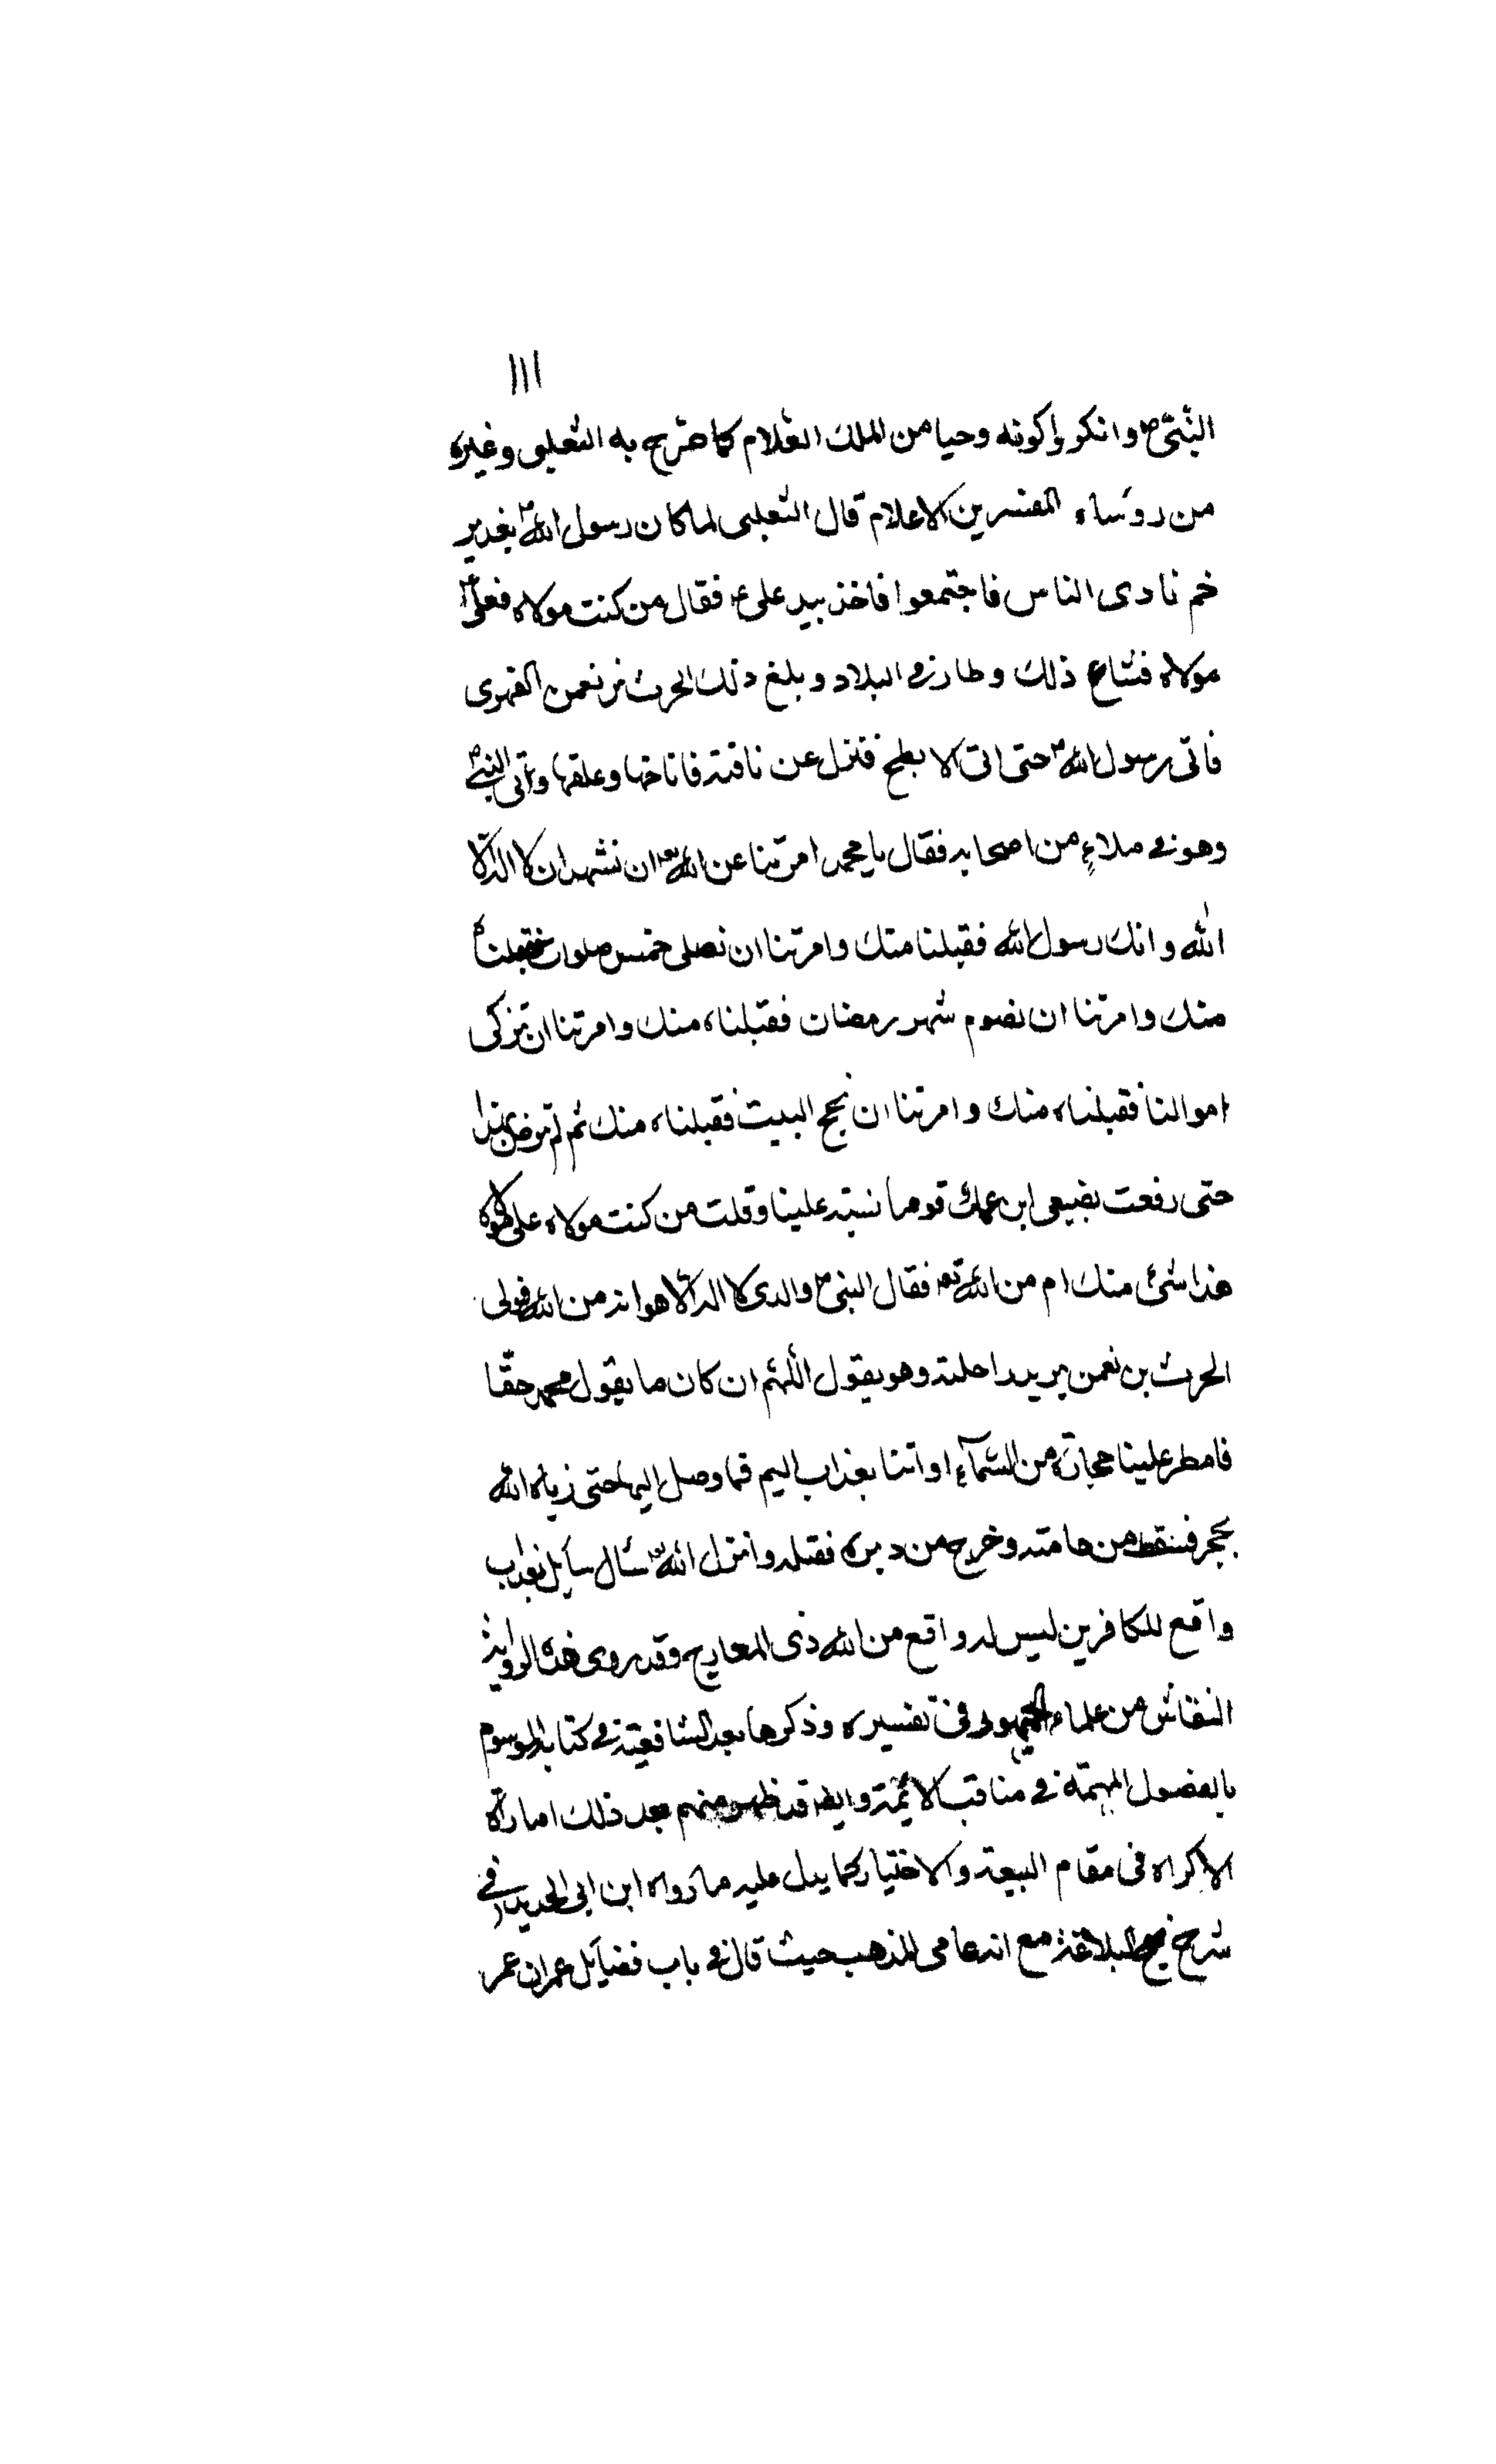 ١١١
النبيّ ص وانكروا كونه وحيا من الملك العلام كما صرّح به الثعلبى وغيره
من روساء المفسرين الاعلام قال الثعلبى لما كان رسول الله ص بغدير
خم نادى الناس فاجتمعوا فاخذ بيد على ع فقال من كنت مولاه فعلىّ
مولاه فشاع ذلك وطار فى البلاد وبلغ ذلك الحرث بن نعمن الفهرى
فاتى رسول الله ص حتى اتى الابطح فنزل عن ناقته فاناخها وعلقها واتى النبى ص
وهو فى ملاءٍ من اصحابه فقال يا محمد امرتنا عن الله تع ان نشهد ان لا اله الا
الله وانك رسول الله فقبلنا منك وامرتنا ان نصلى خمس صلوات فقبلناه
منك وامرتنا ان نصوم شهر رمضان فقبلناه منك وامرتنا ان نزكى
اموالنا فقبلناه منك وامرتنا ان نحج البيت فقبلناه منك ثم لم ترض بهذا
حتى رفعت بضبعى ابن عمك علينا وقلت من كنت مولاه على مولاه
هذا شئ منك ام من الله تع فقال النبى ص والذى لا اله الا هو انه من الله فولى
الحرث بن نعمن يريد راحلته وهو يقول اللهم ان كان ما يقول محمد حقّا
فامطر علينا حجارة من السّمآء او اتنا بعذاب اليم فما وصل اليها حتى رماه الله
بحجر فسقط من هامته وخرج من دبره فقتله وانزل الله تع سأل سآيل بعذاب
واقع للكافرين ليس له واقع من الله ذى المعارج وقد روى هذه الرواية
النقاش من علماء الجمهور فى تفسيره وذكرها بعد الشافعية فى كتابه الموسوم
بالفصول المهمّة فى مناقب الائمّة وايضا قد ظهر منهم بعد ذلك امارة
الاكراه فى مقام البيعة والاختيار كما يدل عليه ما رواه ابن ابى الحديد فى
شرح نهج البلاغة مع انه عامى المذهب حيث قال فى باب فضآيل عمر ان عمر